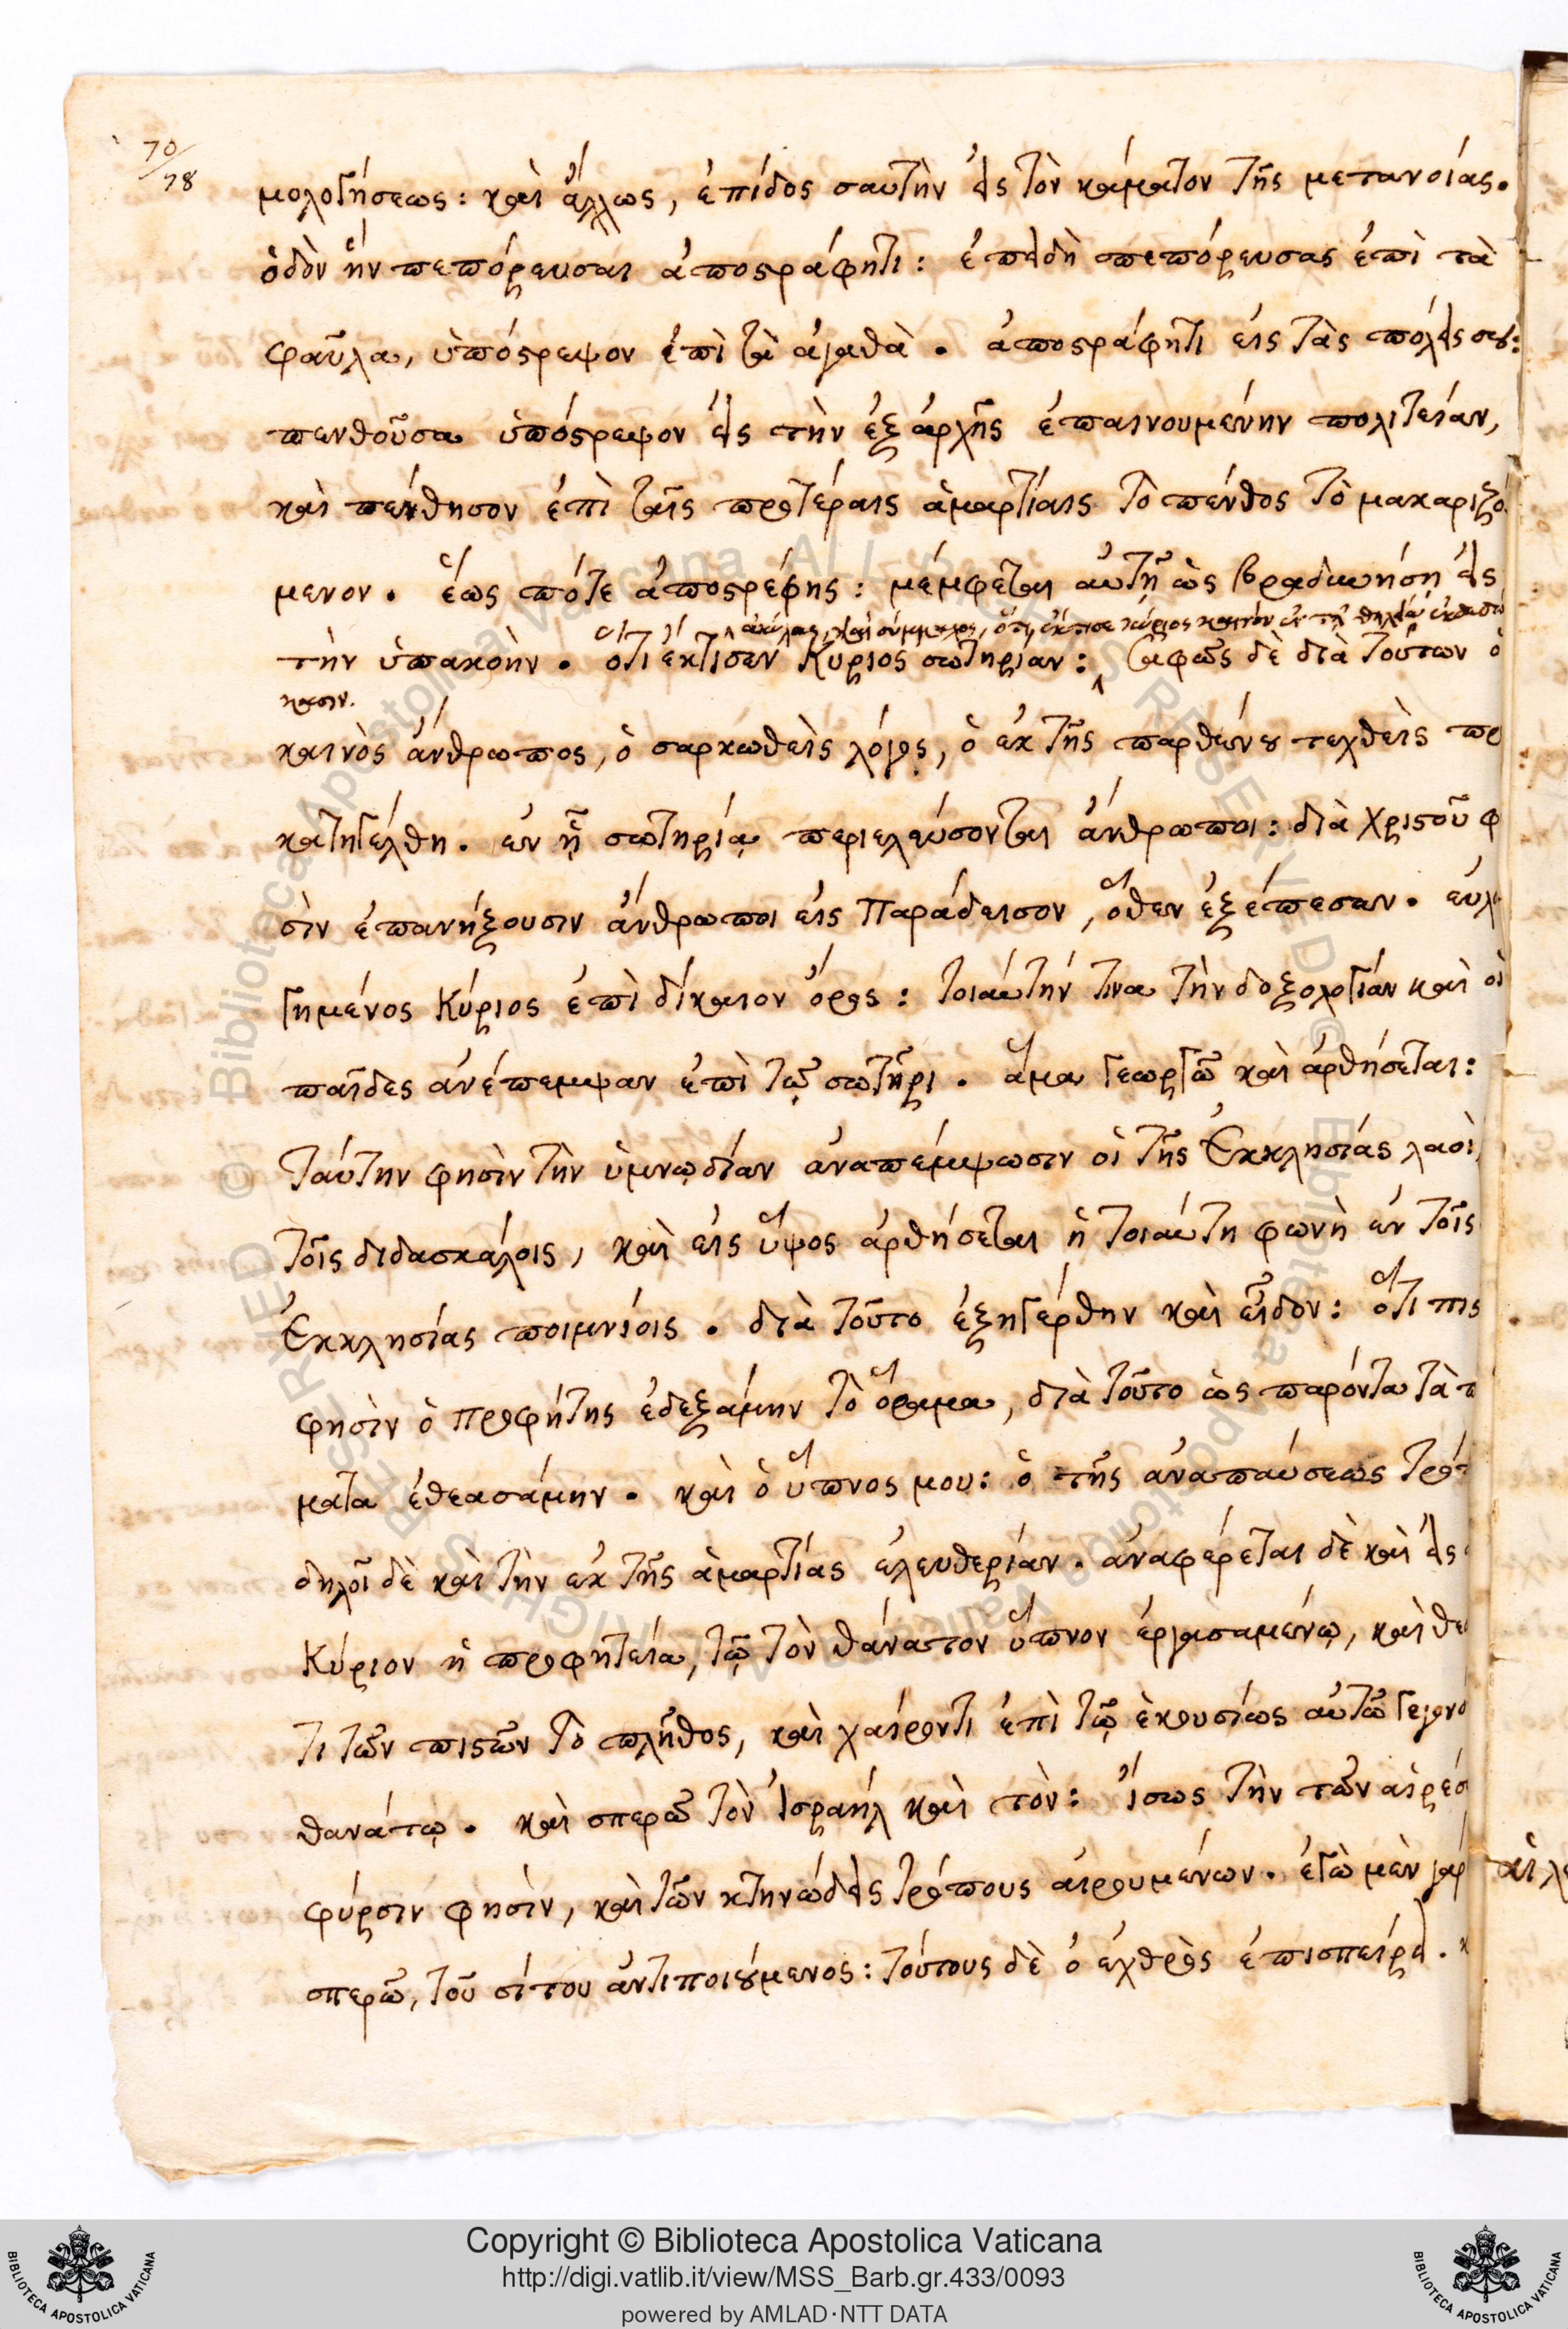 70/78
μολογήσεως: καὶ ἄλλως, ἐπίδος σαυτὴν εἰς τὸν κάματον τῆς μετανοίας.
ὁδὸν ἣν πεπόρευσαι ἀποστράφητι: ἐπειδὴ πεπόρευσαι ἐπὶ τὰ
φαῦλα, ὑπόστρεψον ἐπὶ τὰ ἀγαθὰ. ἀποστράφητι εἰς τὰς πόλεις σου:
πενθοῦσα ὑπόστρεψον εἰς τὴν ἐξἀρχῆς ἐπαινουμένην πολιτείαν,
καὶ πένθησον ἐπὶ ταῖς προτέραις ἁμαρτίαις τὸ πένθος τὸ μακαριζό
μενον. ἕως πότε ἀποστρέφης: μέμφεται αὐτῇ ὡς βραδυνήσῃ εἰς
ἀκύλας, καὶ σύμμαχος, ὅτι ἔκτισε κύριος καινὸν ἐν τῇ θηλείᾳ
τὴν ὑπακοὴν. ὅτι ἔκτισεν Κύριος σωτηρίαν: σαφῶς δὲ διὰ τούτων ὁ
καινὸς ἄνθρωπος, ὁ σαρκωθεὶς λόγος, ὁ ἐκ τῆς παρθένου τεχθεὶς προ
κατηγέλθη. ἐν ᾗ σωτηρίᾳ περιελεύσονται ἄνθρωποι: διὰ Χριστοῦ φ
σὶν ἐπανήξουσιν ἄνθρωποι εἰς Παράδεισον, ὅθεν ἐξέπεσαν. εὐλο
γημένος Κύριος ἐπὶ δίκαιον ὄρος: τοιαύτην τινα τὴν δοξολογίαν καὶ οἱ
παῖδες ἀνέπεμψαν ἐπὶ τῷ σωτῆρι. ἅμα γεωργῷ καὶ ἀρθήσεται:
ταύτην φησὶν τὴν ὑμνῳδίαν ἀναπέμψωσιν οἱ τῆς Ἐκκλησίας λαοὶ,
τοῖς διδασκάλοις, καὶ εἰς ὕψος ἀρθήσεται ἡ τοιαύτη φωνὴ ἐν τοῖς
Ἐκκλησίας ποιμνίοις. διὰ τοῦτο ἐξηγέρθην καὶ εἶδον: ὅτι πισ
φησὶν ὁ προφήτης ἐδεξάμην τὸ ὅραμα, διὰ τοῦτο ὡς παρόντα τὰ π
ματα ἐθεασάμην. καὶ ὁ ὕπνος μου: ὁ τῆς ἀναπαύσεως τρό
δηλοῖ δὲ καὶ τὴν ἐκ τῆς ἁμαρτίας ἐλευθερίαν. ἀναφέρεται δὲ καὶ εἰς
Κύριον ἡ προφητεία, τῷ τὸν θάνατον ὕπνον ἐργασαμένῳ, καὶ θε
τι τῶν πιστῶν τὸ πλῆθος, καὶ χαίροντι ἐπὶ τῷ ἑκουσίως αὐτῷ γεγονό
θανάτῳ. καὶ σπερῶ τὸν Ἰσραὴλ καὶ τὸν: ἴσως τὴν τῶν αἱρέσ
φύρσιν φησὶν, καὶ τῶν κτηνώδεις τρόπους αἱρουμένων. ἐγὼ μὲν γὰρ
σπερῶ, τοῦ σίτου ἀντιποιούμενος: τούτους δὲ ὁ ἐχθρὸς ἐπισπείρει.
Copyright © Biblioteca Apostolica Vaticana
http://digi.vatlib.it/view/MSS_Barb.gr.433/0093
powered by AMLAD·NTT DATA
BIBLIOTECA APOSTOLICA VATICANA
BIBLIOTECA APOSTOLICA VATICANA